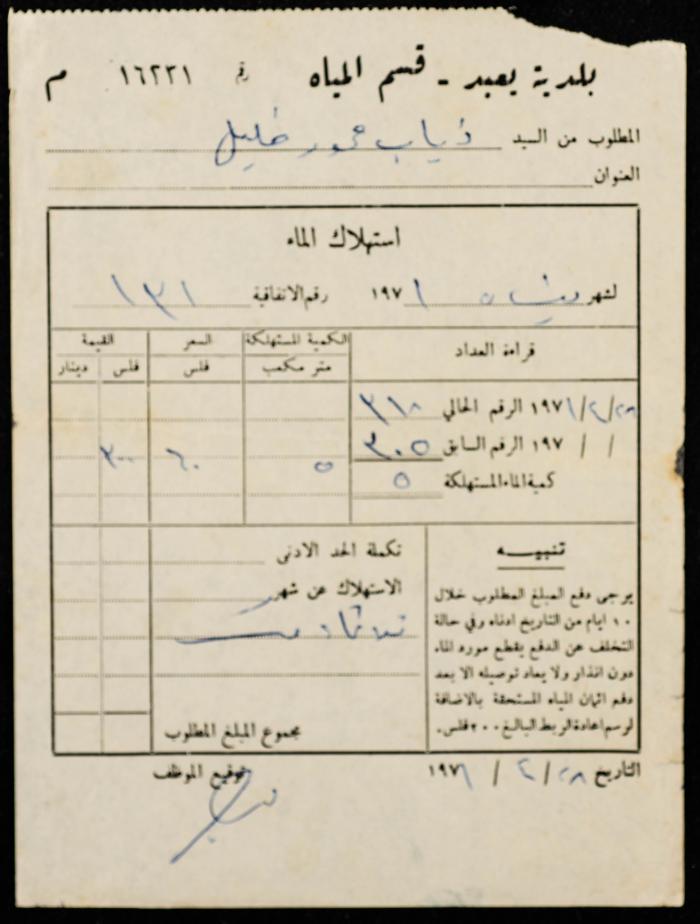 بلدية يعبد - قسم المياه رقم ١٦٢٣١ م
المطلوب من السيد ذياب محمود خليل
العنوان
استهلاك الماء
لشهر ١٩٧١ رقم الاتفاقية ١٣١
قراءة العداد الكمية المستهلكة السعر القيمة
متر مكعب فلس فلس دينار
٢٨/٢/١٩٧١ الرقم الحالي ٣١٠
/ / ١٩٧ الرقم السابق ٣٠٥
٥ ٦٠ ٣٠٠
كمية الماء المستهلكة ٥
تكملة الحد الادنى
الاستهلاك عن شهر
مجموع المبلغ المطلوب
تنبيه
يرجى دفع المبلغ المطلوب خلال
١٠ ايام من التاريخ ادناه وفي حالة
التخلف عن الدفع يقطع مورد الماء
دون انذار ولا يعاد توصيله الا بعد
دفع اثمان المياه المستحقة بالاضافة
لرسم اعادة الربط البالغ ٢٠٠ فلس.
التاريخ ٢٨/٢/١٩٧١
توقيع الموظف